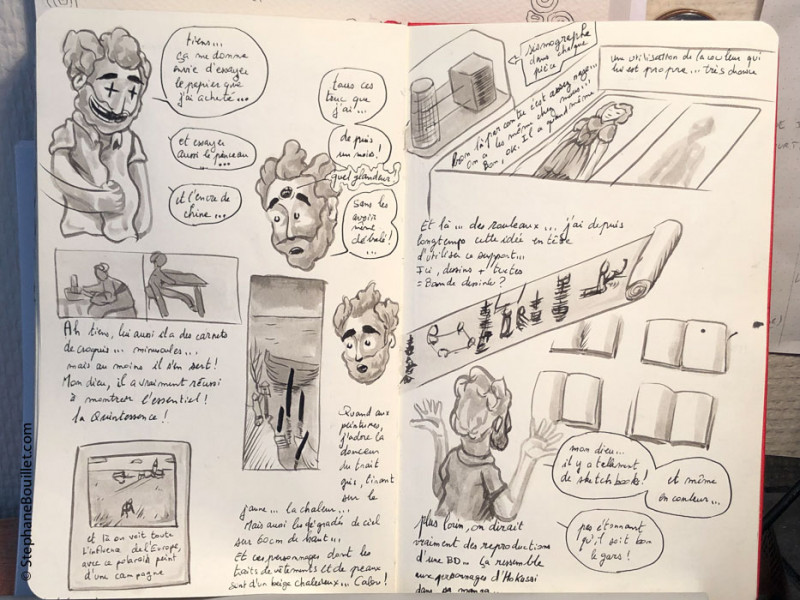 tiens...
ça me donne
envie d'essayer
le papier que
j'ai acheté...
et essayer
aussi le pinceau
...
et l'encre de
chine...
tous ces
truc que
j'ai...
depuis
un mois!
quel glandeur!
sans les
avoir
même
déballé!
...
Ah tiens, lui aussi il a des carnets
de croquis... minuscules...
mais au moins il s'en sert!
Mon dieu, il a vraiment réussi
à montrer l'essentiel!
la Quintessence!
et là on voit toute
l'influence de l'Europe,
avec ce polaroid peint
d'une campagne
Quand aux
peintures,
j'adore la
douceur
du trait
qui, tirant
sur le
jaune... la chaleur...
Mais aussi les dégradés de ciel
sur 60cm de haut...
Et ces personnages dont les
traits de vêtements et de peaux
sont d'un beige chaleureux... Calou!
sismographe
dans chaque
pièce
Bon là par contre c'est assez naze...
on a les même chez nous...!
Bon, ok. Il a quand même
une utilisation de la couleur qui
lui est propre... très douce
Et là... des rouleaux... j'ai depuis
longtemps cette idée en tête
d'utiliser ce support...
Ici, dessins + textes
= Bande dessinée?
mon dieu...
il y a tellement
de sketchbooks!
et même
en couleur...
pas étonnant
qu'il soit bon
le gars!
plus loin, on dirait
vraiment des reproductions
d'une BD... la ressemble
aux personnages d'Hokusai
dans en manga...
© StephaneBouillet.com